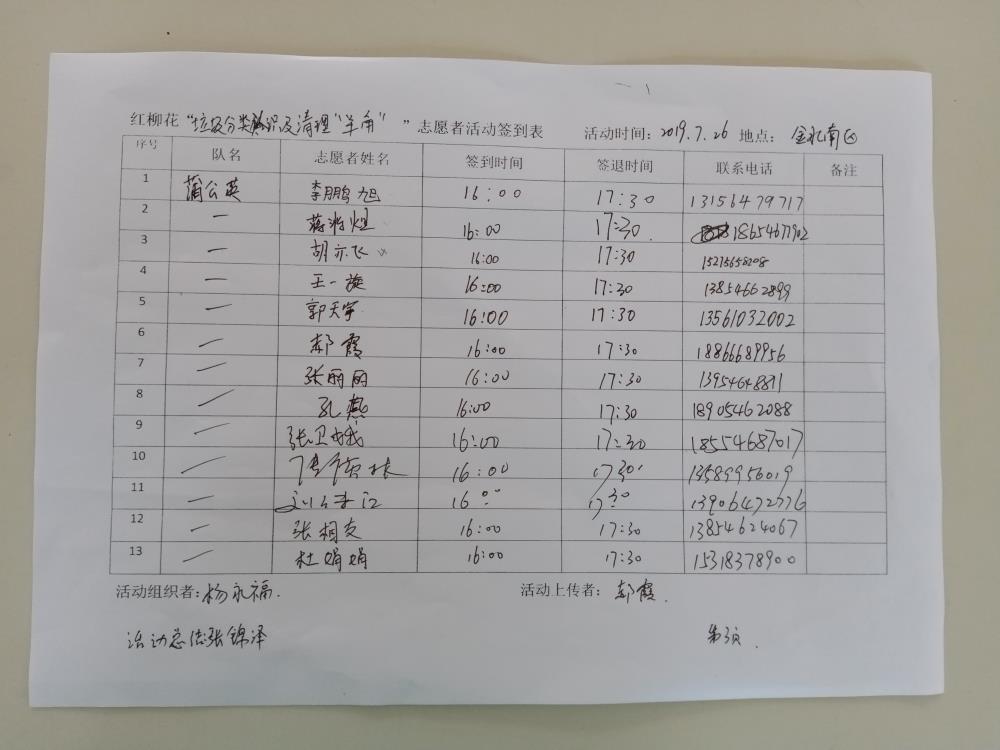 红柳花“垃圾分类知识及清理“羊角” ”志愿者活动签到表 活动时间：2019.7.26 地点：金水南区
序号 队名 志愿者姓名 签到时间 签退时间 联系电话 备注
1 蒲公英 李鹏旭 16:00 17:30 13156479717
2 一 蒋 16:00 17:30 18654677902
3 一 胡亦飞 16:00 17:30 15275658208
4 一 王一璇 16:00 17:30 13854662899
5 一 郭天宇 16:00 17:30 13561032002
6 一 郝霞 16:00 17:30 18866689956
7 一 张丽丽 16:00 17:30 13954648811
8 一 孔燕 16:00 17:30 18905462088
9 一 张卫娥 16:00 17:30 18554687017
10 一 16:00 17:30 13589956019
11 一 16:00 17:30 13906472776
12 一 张相友 16:00 17:30 13854624067
13 一 杜娟娟 16:00 17:30 15318378900
活动组织者：杨永福. 活动上传者：郝霞.
活动总结张锦泽 第3页.